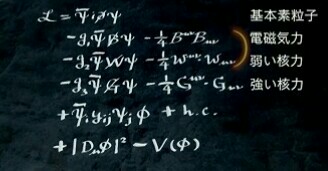 ℒ = ψ̄ i∂̸ ψ 基本素粒子
- g₁ψ̄B̸ψ - 1/4 B^μν B_μν 電磁気力
- g₂ψ̄W̸ψ - 1/4 W^μν·W_μν 弱い核力
- g₃ψ̄G̸ψ - 1/4 G^μν·G_μν 強い核力
+ ψ̄ᵢ yᵢⱼ ψⱼ ϕ + h.c.
+ |D_μϕ|² - V(ϕ)